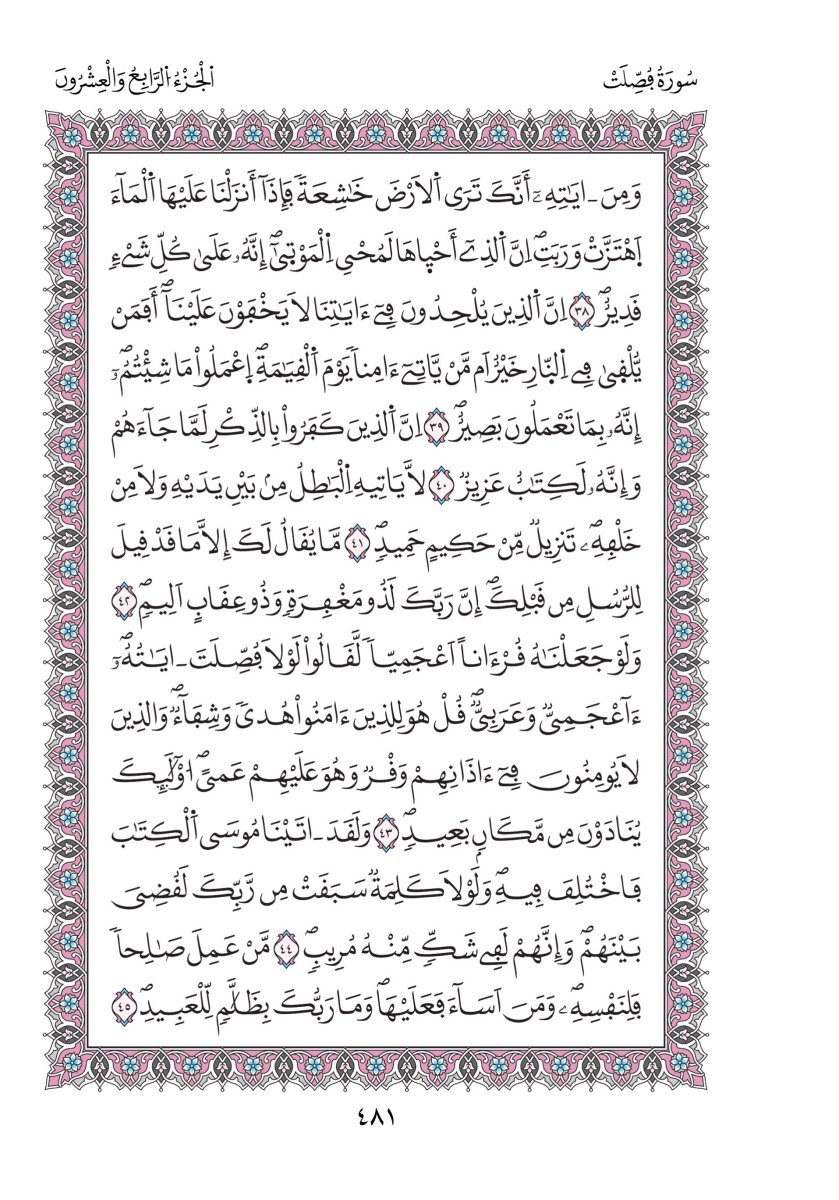 سُورَةُ فُصِّلَتْ
اَلْجُزْءُ الرَّابِعُ وَالْعِشْرُونَ
وَمِنَ ـ ايَٰتِهِۦٓ أَنَّكَ تَرَى اَلَارْضَ خَٰشِعَةٗ فَإِذَآ أَنزَلْنَا عَلَيْهَا اَلْمَآءَ
اَهْتَزَّتْ وَرَبَتِۖ اِنَّ اَلذِےٓ أَحْيٜاهَا لَمُحْيِ اِلْمَوْتٜىٰٓۖ إِنَّهُۥ عَلَىٰ كُلِّ شَےْءٖ
قَدِيرٌۖ ٣٨ اِنَّ اَلذِينَ يُلْحِدُونَ فِےٓ ءَايَٰتِنَا لَا يَخْفَوْنَ عَلَيْنَآۖ أَفَمَنْ
يُّلْقٜىٰ فِے اِلنّ۪ارِ خَيْرٌ اَم مَّنْ يَّاتِےٓ ءَامِناٗ يَوْمَ اَلْقِيَٰمَةِۖ اِعْمَلُواْ مَا شِئْتُمُۥٓۖ
إِنَّهُۥ بِمَا تَعْمَلُونَ بَصِيرٌۖ ٣٩ اِنَّ اَلذِينَ كَفَرُواْ بِالذِّكْرِ لَمَّا جَآءَهُمْ
وَإِنَّهُۥ لَكِتَٰبٌ عَزِيزٞ ٤٠ لَّا يَاتِيهِ اِلْبَٰطِلُ مِنۢ بَيْنِ يَدَيْهِ وَلَا مِنْ
خَلْفِهِۦۖ تَنزِيلٞ مِّنْ حَكِيمٍ حَمِيدٖۖ ٤١ مَّا يُقَالُ لَكَ إِلَّا مَا قَدْ قِيلَ
لِلرُّسُلِ مِن قَبْلِكَۖ إِنَّ رَبَّكَ لَذُو مَغْفِرَةٖ وَذُو عِقَابٍ اَلِيمٖۖ ٤٢
وَلَوْ جَعَلْنَٰهُ قُرْءَاناً اَعْجَمِيّاٗ لَّقَالُواْ لَوْلَا فُصِّلَتَ ـ ايَٰتُهُۥٓۖ
ءَآعْجَمِيّٞ وَعَرَبِيّٞۖ قُلْ هُوَ لِلذِينَ ءَامَنُواْ هُدىٗ وَشِفَآءٞۖ وَالذِينَ
لَا يُومِنُونَ فِےٓ ءَاذَانِهِمْ وَقْرٞ وَهُوَ عَلَيْهِمْ عَمىًۖ ا۟وْلَٰٓئِكَ
يُنَادَوْنَ مِن مَّكَانِۢ بَعِيدٖۖ ٤٣ وَلَقَدَ ـ اتَيْنَا مُوسَى اَلْكِتَٰبَ
فَاخْتُلِفَ فِيهِۖ وَلَوْلَا كَلِمَةٞ سَبَقَتْ مِن رَّبِّكَ لَقُضِىَ
بَيْنَهُمْۖ وَإِنَّهُمْ لَفِے شَكّٖ مِّنْهُ مُرِيبٖۖ ٤٤ مَّنْ عَمِلَ صَٰلِحاٗ
فَلِنَفْسِهِۦۖ وَمَنَ اَسَآءَ فَعَلَيْهَاۖ وَمَا رَبُّكَ بِظَلَّٰمٖ لِّلْعَبِيدِۖ ٤٥
٤٨١